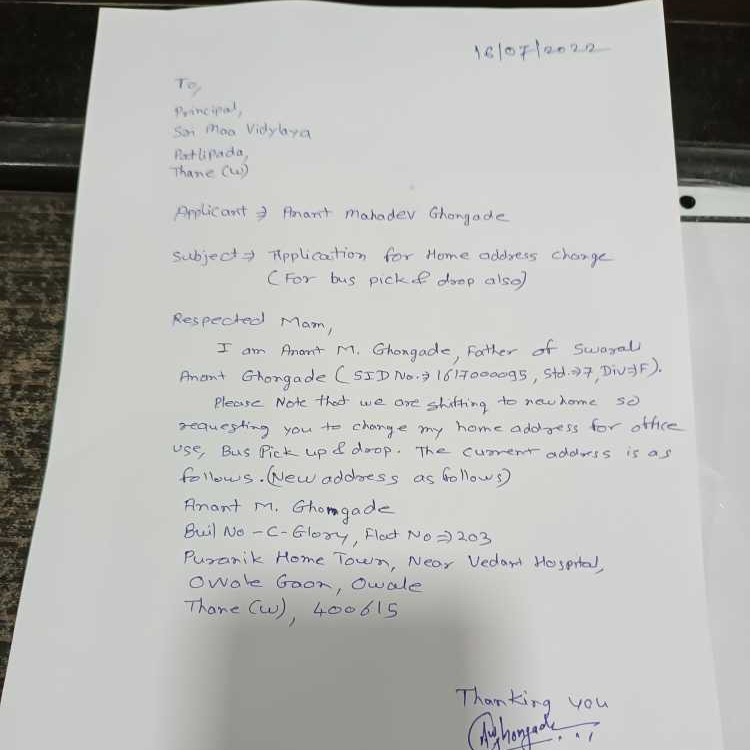 16/07/2022
To,
Principal,
Sai Maa Vidylaya
Patlipada,
Thane (W)
Applicant ⇒ Anant Mahadev Ghongade
Subject ⇒ Application for Home address change
(For bus pick & drop also)
Respected Mam,
I am Anant M. Ghongade, Father of Swarali
Anant Ghongade (SID No. ⇒ 1617000095, Std. ⇒ 7, Div ⇒ F).
Please Note that we are shifting to new home so
requesting you to change my home address for office
use, Bus Pick up & drop. The current address is as
follows. (New address as follows)
Anant M. Ghongade
Buil No - C - Glory, Flat No ⇒ 203
Puranik Home Town, Near Vedant Hospital,
Owale Gaon, Owale
Thane (W), 400615
Thanking you
AMGhongade